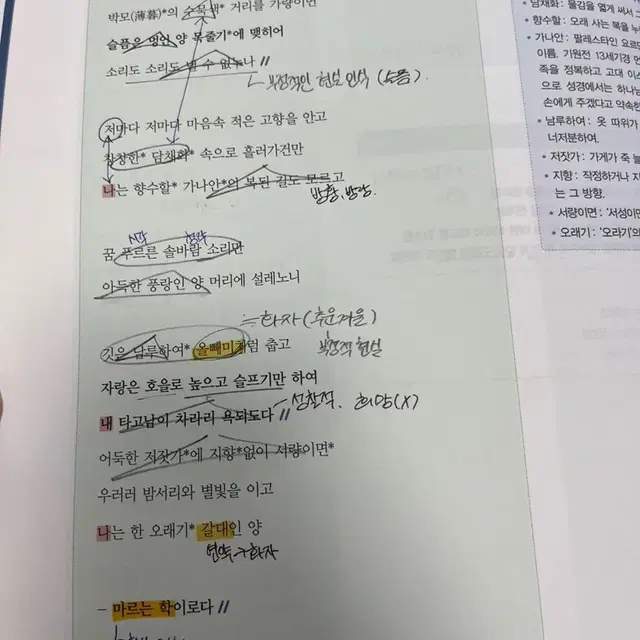 박모(薄暮)*의 거리를 가량이면
슬픔은 멍인 양 목줄기*에 맺히어
소리도 소리도 낼 수 없누나 //
부정적인 현실 인식 (슬픔).
저마다 저마다 마음속 적은 고향을 안고
창창한* 담채화* 속으로 흘러가건만
나는 향수할* 가나안*의 복된 길도 모르고
방황, 방랑
시각 청각
꿈 푸르른 솔바람 소리만
아득한 풍랑인 양 머리에 설레노니
≒ 화자 (추운 겨울)
깃은 남루하여* 올빼미처럼 춥고
부정적 현실
자랑은 호을로 높으고 슬프기만 하여
내 타고남이 차라리 욕되도다 //
성찰적. 희망(X)
어둑한 저잣가*에 지향*없이 서량이면*
우러러 밤서리와 별빛을 이고
나는 한 오래기* 갈대인 양
연약 화자
- 마르는 학이로다 //
* 담채화: 물감을 엷게 써서
* 향수할: 오래 사는 복을 누
* 가나안: 팔레스타인 요르
이름. 기원전 13세기경
족을 정복하고 고대 이스
으로 성경에서는 하나님
손에게 주겠다고 약속한
* 남루하여: 옷 따위가
너저분하여.
* 저잣가: 가게가 죽 늘
* 지향: 작정하거나 지
는 그 방향.
* 서량이면: '서성이면
* 오래기: '오라기'의